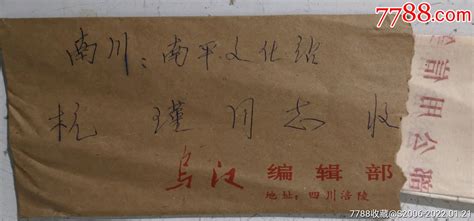 7788.com
南川：南平文化站
杭 瑾 同志 收
乌江 编辑部
地址：四川涪陵
7788收藏@S2006-2022.01.24